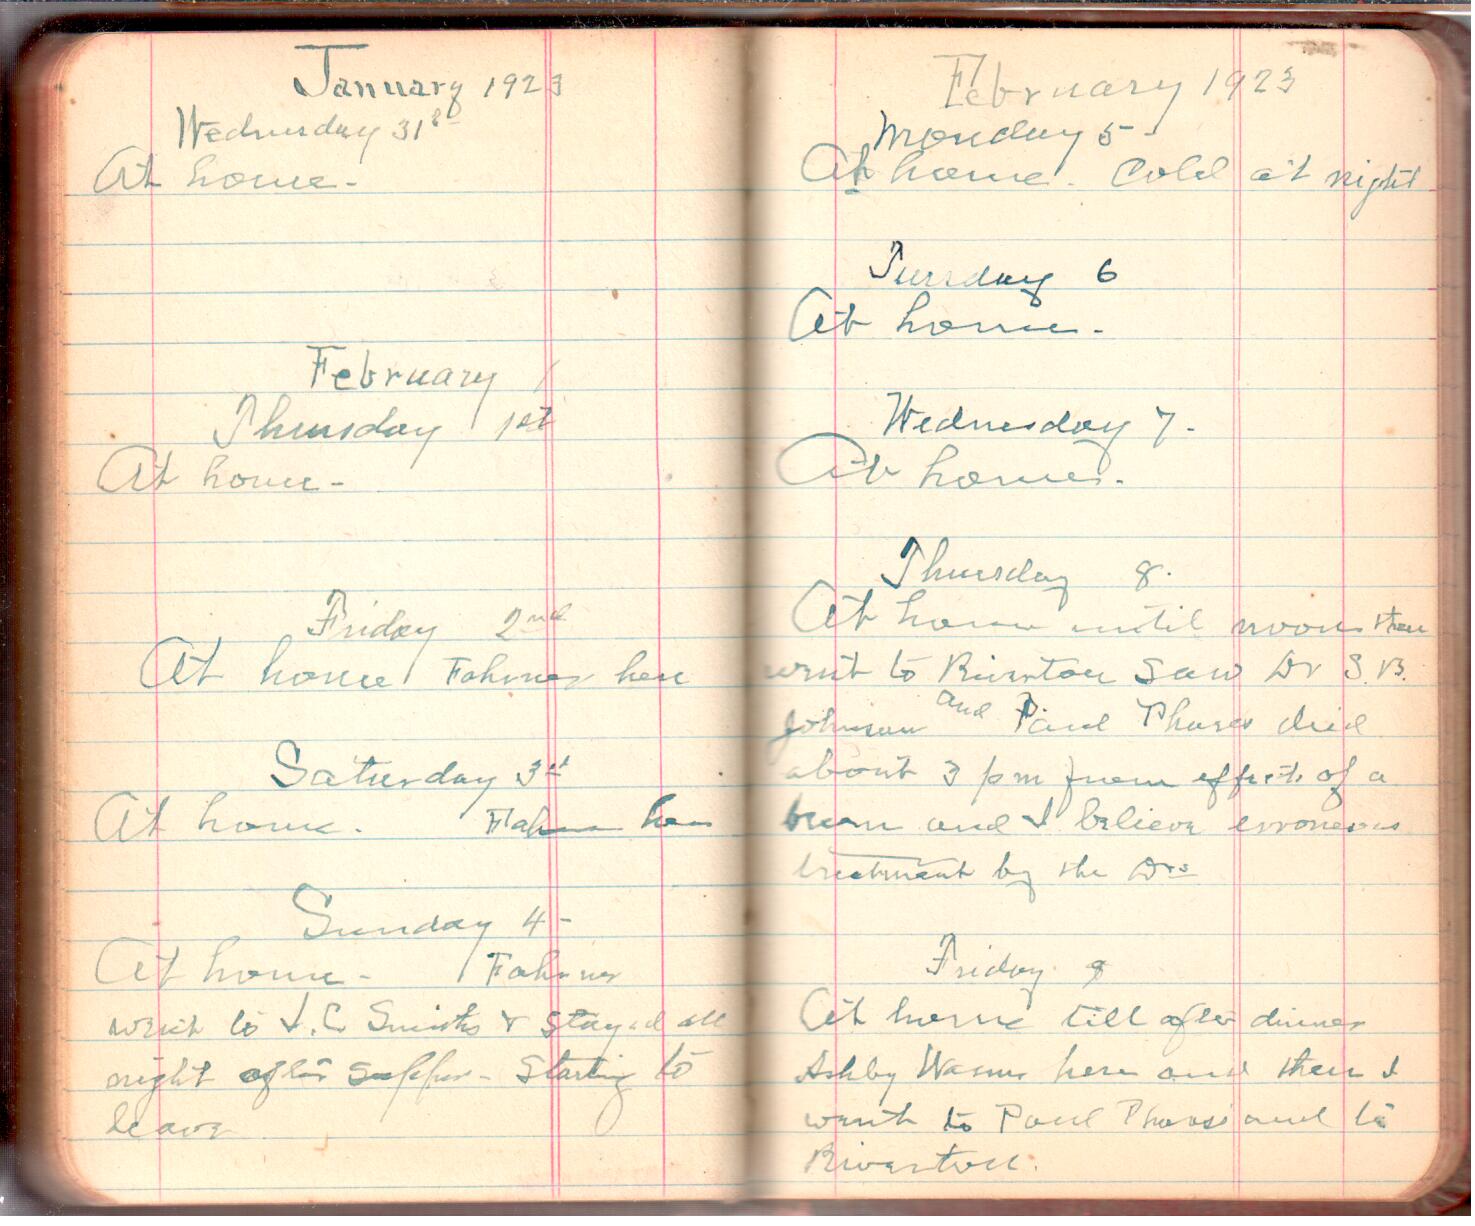 January 1923
Wednesday 31st
At home.
February 1
Thursday 1st
At home.
Friday 2nd
At home Fahrney here
Saturday 3d
At home. Fahrney here
Sunday 4-
At home. Fahrney
went to J.C. Smiths & stayed all
night after supper - Starting to
leave
February 1923
Monday 5-
At home. Cold at night
Tuesday 6
At home.
Wednesday 7.
At home.
Thursday 8.
At home until noon then
went to Riverton Saw Dr S.B.
Johnson and Paul Phares died
about 3 pm from effects of a
burn and I believe erroneous
treatment by the Drs
Friday 9
At home till after dinner
Ashby here and then I
went to Paul Phares and to
Riverton.